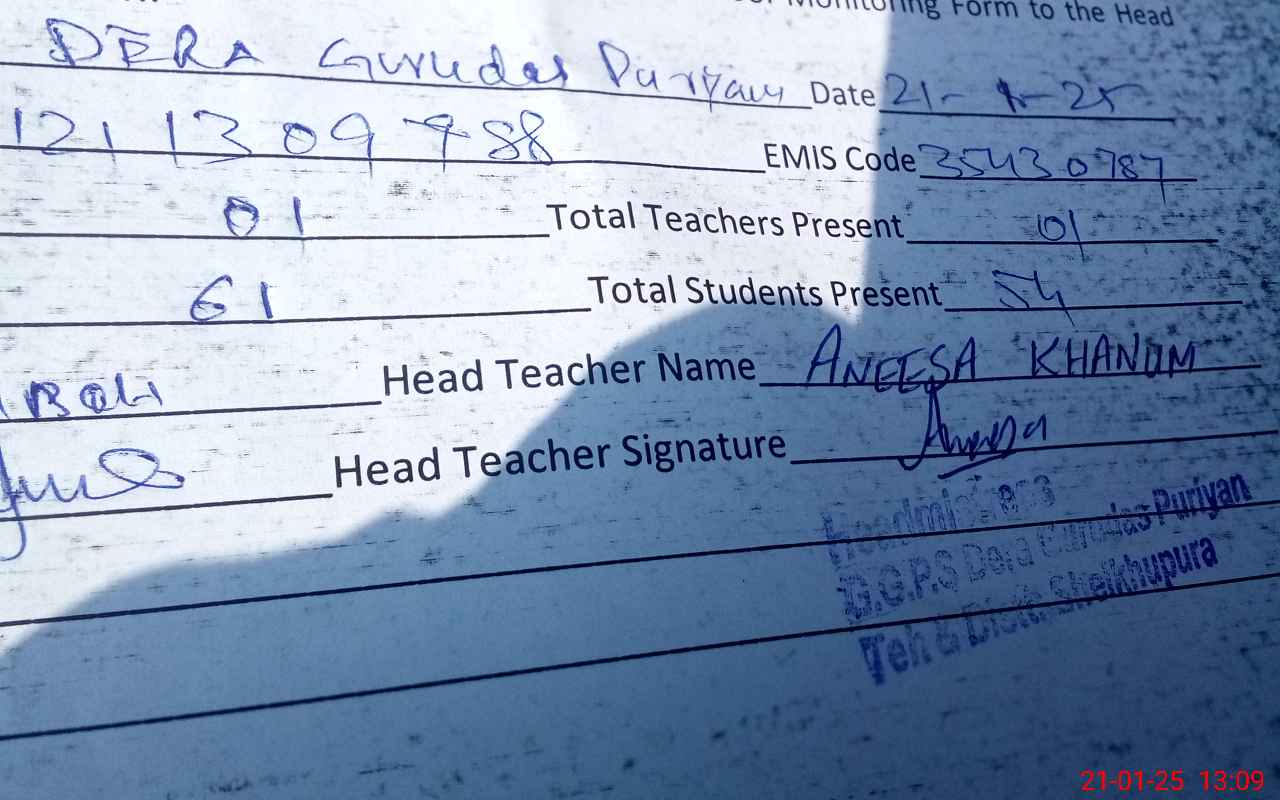 Monitoring Form to the Head
DERA Gurudas Puriyan Date 21-1-25
121 13 09 988 EMIS Code 35430787
01 Total Teachers Present 01
61 Total Students Present 54
Head Teacher Name ANEESA KHANUM
Head Teacher Signature
Headmistress
G.G.P.S Dera Gurudas Puriyan
Teh & Distt. Sheikhupura
21-01-25 13:09